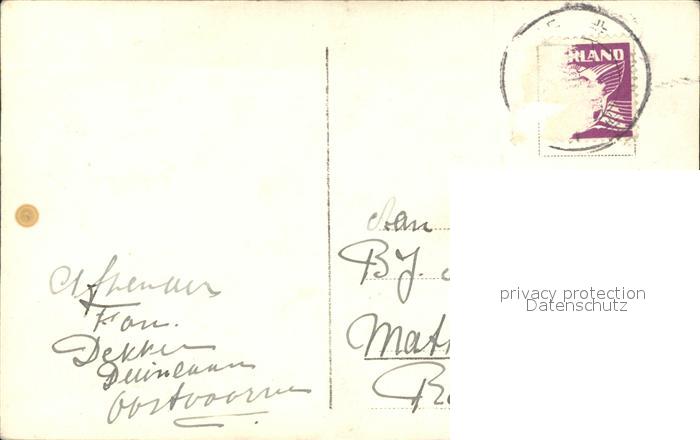 RLAND
Aan
B.J.
privacy protection
Datenschutz
Afzender
Fan.
Dekker
Duinlaan
Oostvoorne